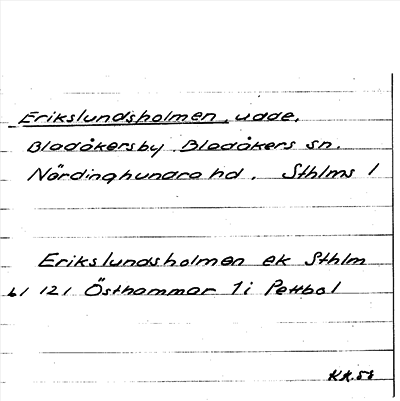 Erikslundsholmen, udde,
Bladåkersby, Bladåkers sn.
Närdinghundra hd. Sthlms l
Erikslundsholmen ek Sthlm
bl 121 Östhammar 1i Pettbol
K.K.